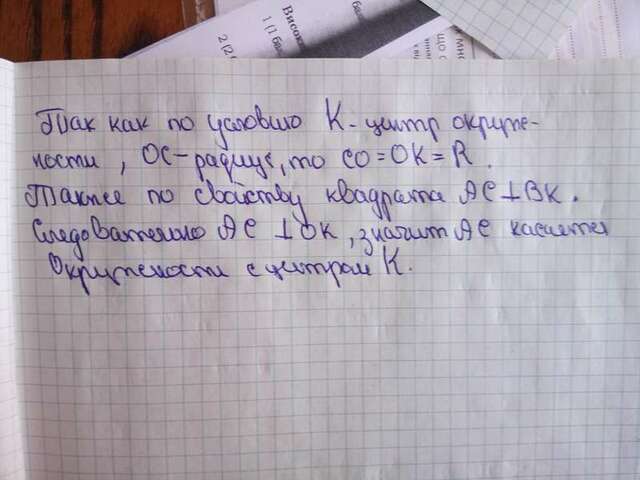 Так как по условию K - центр окруж-
ности, OC - радиус, то CO = OK = R.
Также по свойству квадрата AC ⊥ BK.
Следовательно AC ⊥ OK, значит AC касается
окружности с центром K.
2 (2
1 (1 бал
Висок
бала
що с